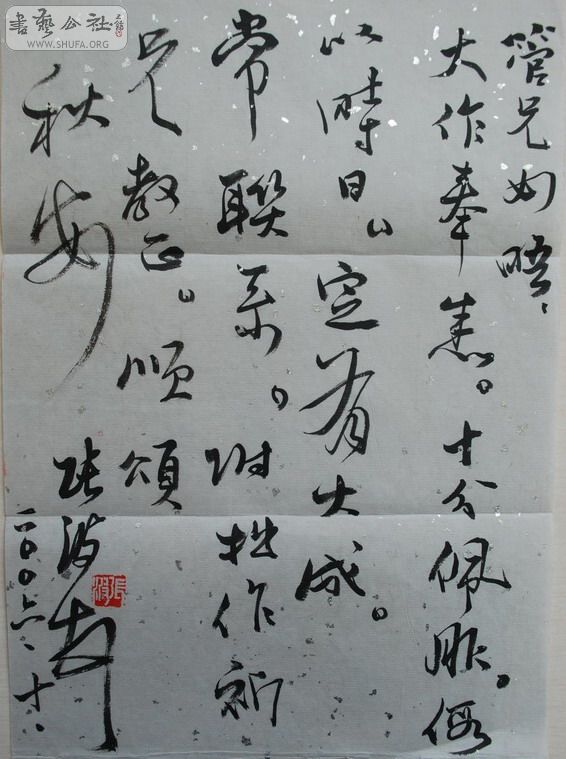 書藝公社
WWW.SHUFA.ORG
管兄如晤、
大作奉悉。十分佩服。假
以時日，定有大成。
常聯系。附拙作祈
兄教正。順頌
秋安
張波
二〇〇六、十、
張波